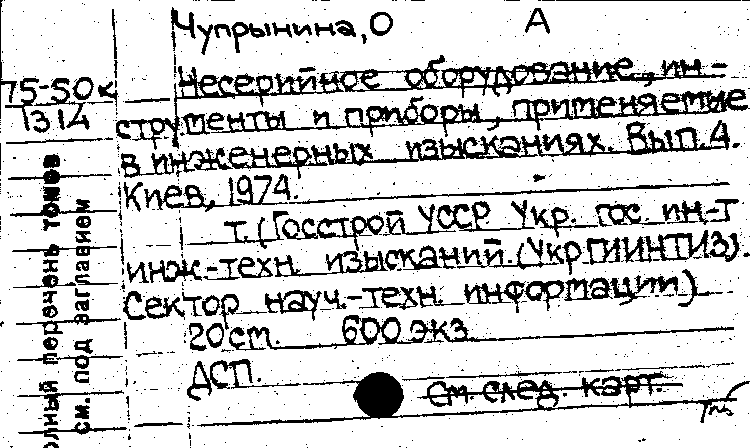 Чупрынина, О А
Несерийное оборудование, ин-
75-50к
1314
струменты и приборы, применяемые
в инженерных изысканиях. Вып. 4.
Киев, 1974.
т. (Госстрой УССР Укр. гос. ин-т
инж.-техн. изысканий. (УкрГИИНТИЗ).
Сектор науч.-техн. информации)
20 см. 600 экз.
ДСП.
См след. карт.
олный перечень томов
см. под заглавием